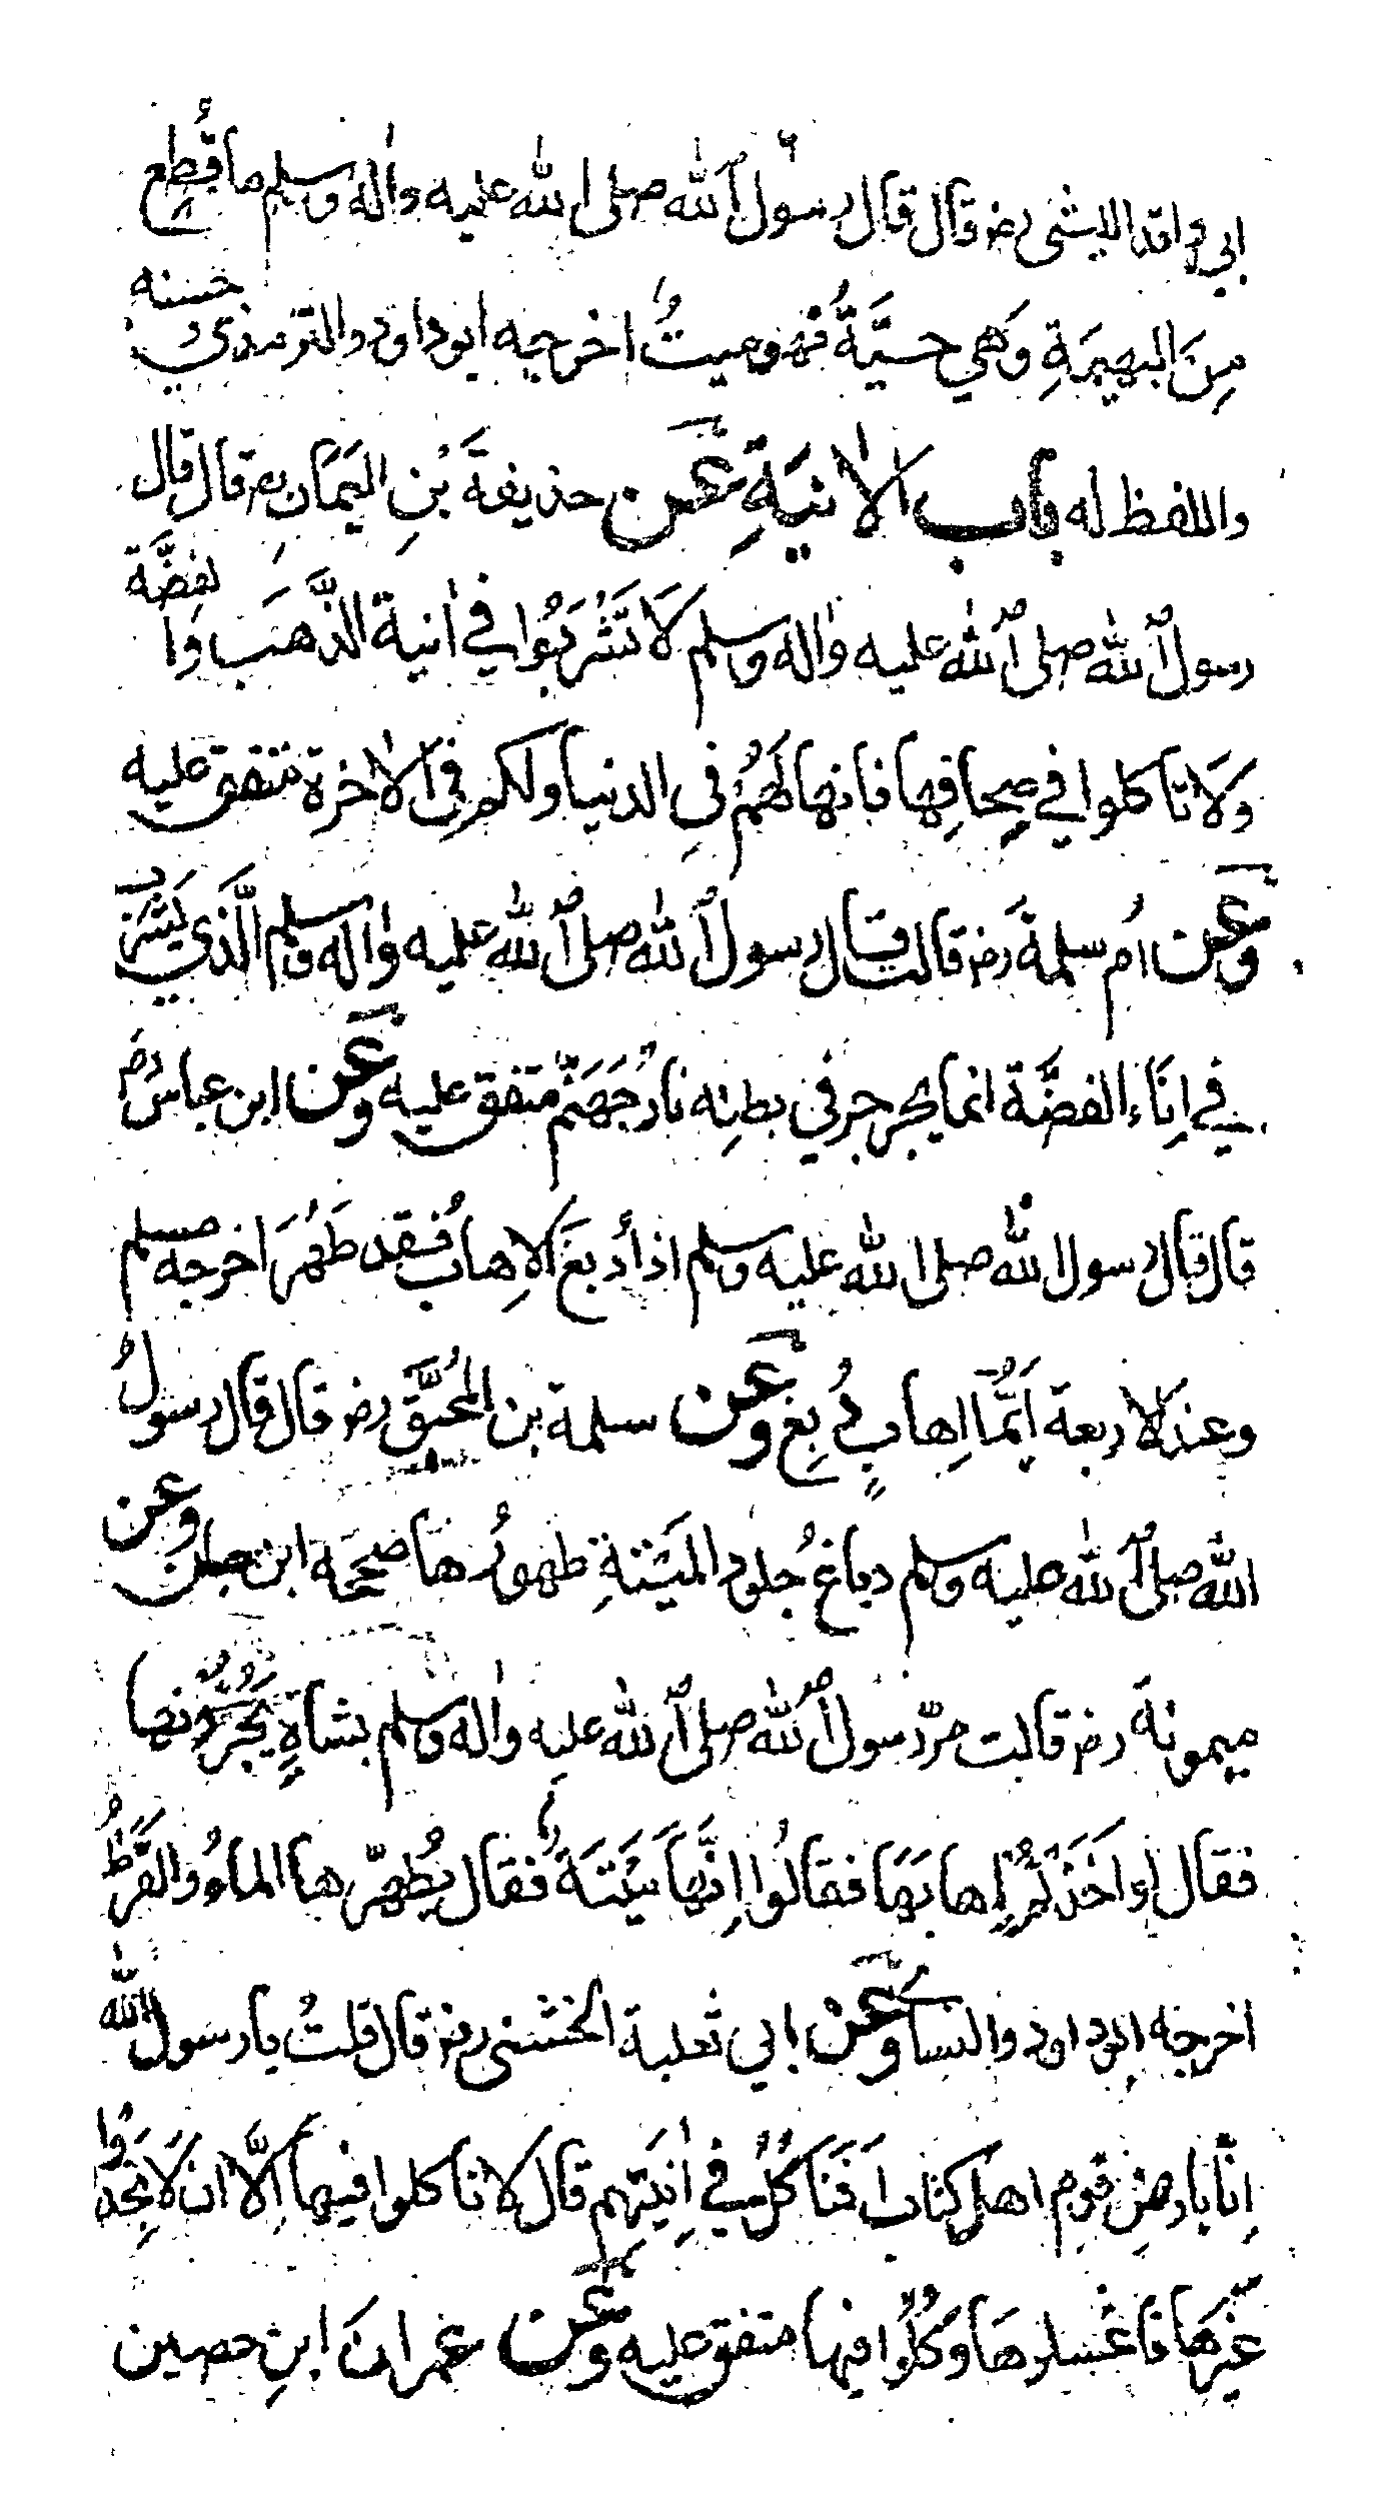 ابي واقد الليثي رضـ قال قال رسول الله صلى الله عليه واله وسلم ما قُطِع
مِنَ البهيمَةِ وَهي حيَّةٌ فهو ميتٌ اخرجه ابو داود والترمذي وحسنه
واللفظ له باب الانيَةِ عَن حذيفةَ بْنِ اليَمَانِ رضـ قال قال
رسول الله صلى الله عليه واله وسلم لَا تَشْرَبُوا في انية الذَّهَب والفضَّة
وَلَا تاكلوا في صِحافِها فانها لَهُمْ فِي الدنيا ولكم فِي الاخرة متفق عليه
وَعَن ام سلمةَ رضـ قالت قال رسول الله صلى الله عليه واله وسلم الَّذي يَشْرَبُ
في اِنَاء الفضَّة انما يجرجر في بطنِه نارُ جَهَنَّم متفق عليه وَعَن ابن عباس رضـ
قال قال رسول الله صلى الله عليه وسلم اذا دُبغَ الاِهابُ فقد طَهُرَ اخرجه مسلم
وعند الاربعة اَيُّمَا اِهابٍ دُبِغَ وَعَن سلمة بن المُحَبَّق رضـ قال قال رسولُ
الله صلى الله عليه وسلم دباغُ جلود المَيْتَةِ طهورُها صححه ابن حبان وعن
ميمونةَ رضـ قالت مرّ رسول الله صلى الله عليه واله وسلم بشاةٍ يَجُرُّونها
فقال لو اَخَذْتُمْ اِهابَهَا فقالُوا اِنَّهَا مَيْتَةٌ فقال يُطهّرها الماءُ والقَرَظُ
اخرجه ابو داود والنسائي وَعَنْ ابي ثعلبة الخشني رضـ قال قلتُ يا رسول الله
اِنّا بارضِ قوم اهل كتاب اَفَنَاكُلُ في اٰنِيَتِهم قال لا تاكلوا فيها اِلَّا ان لَا تَجِدُوا
غَيْرَهَا فاغْسلوهَا وكُلُوا فيها متفق عليه وَعَن عمران ابنِ حصين